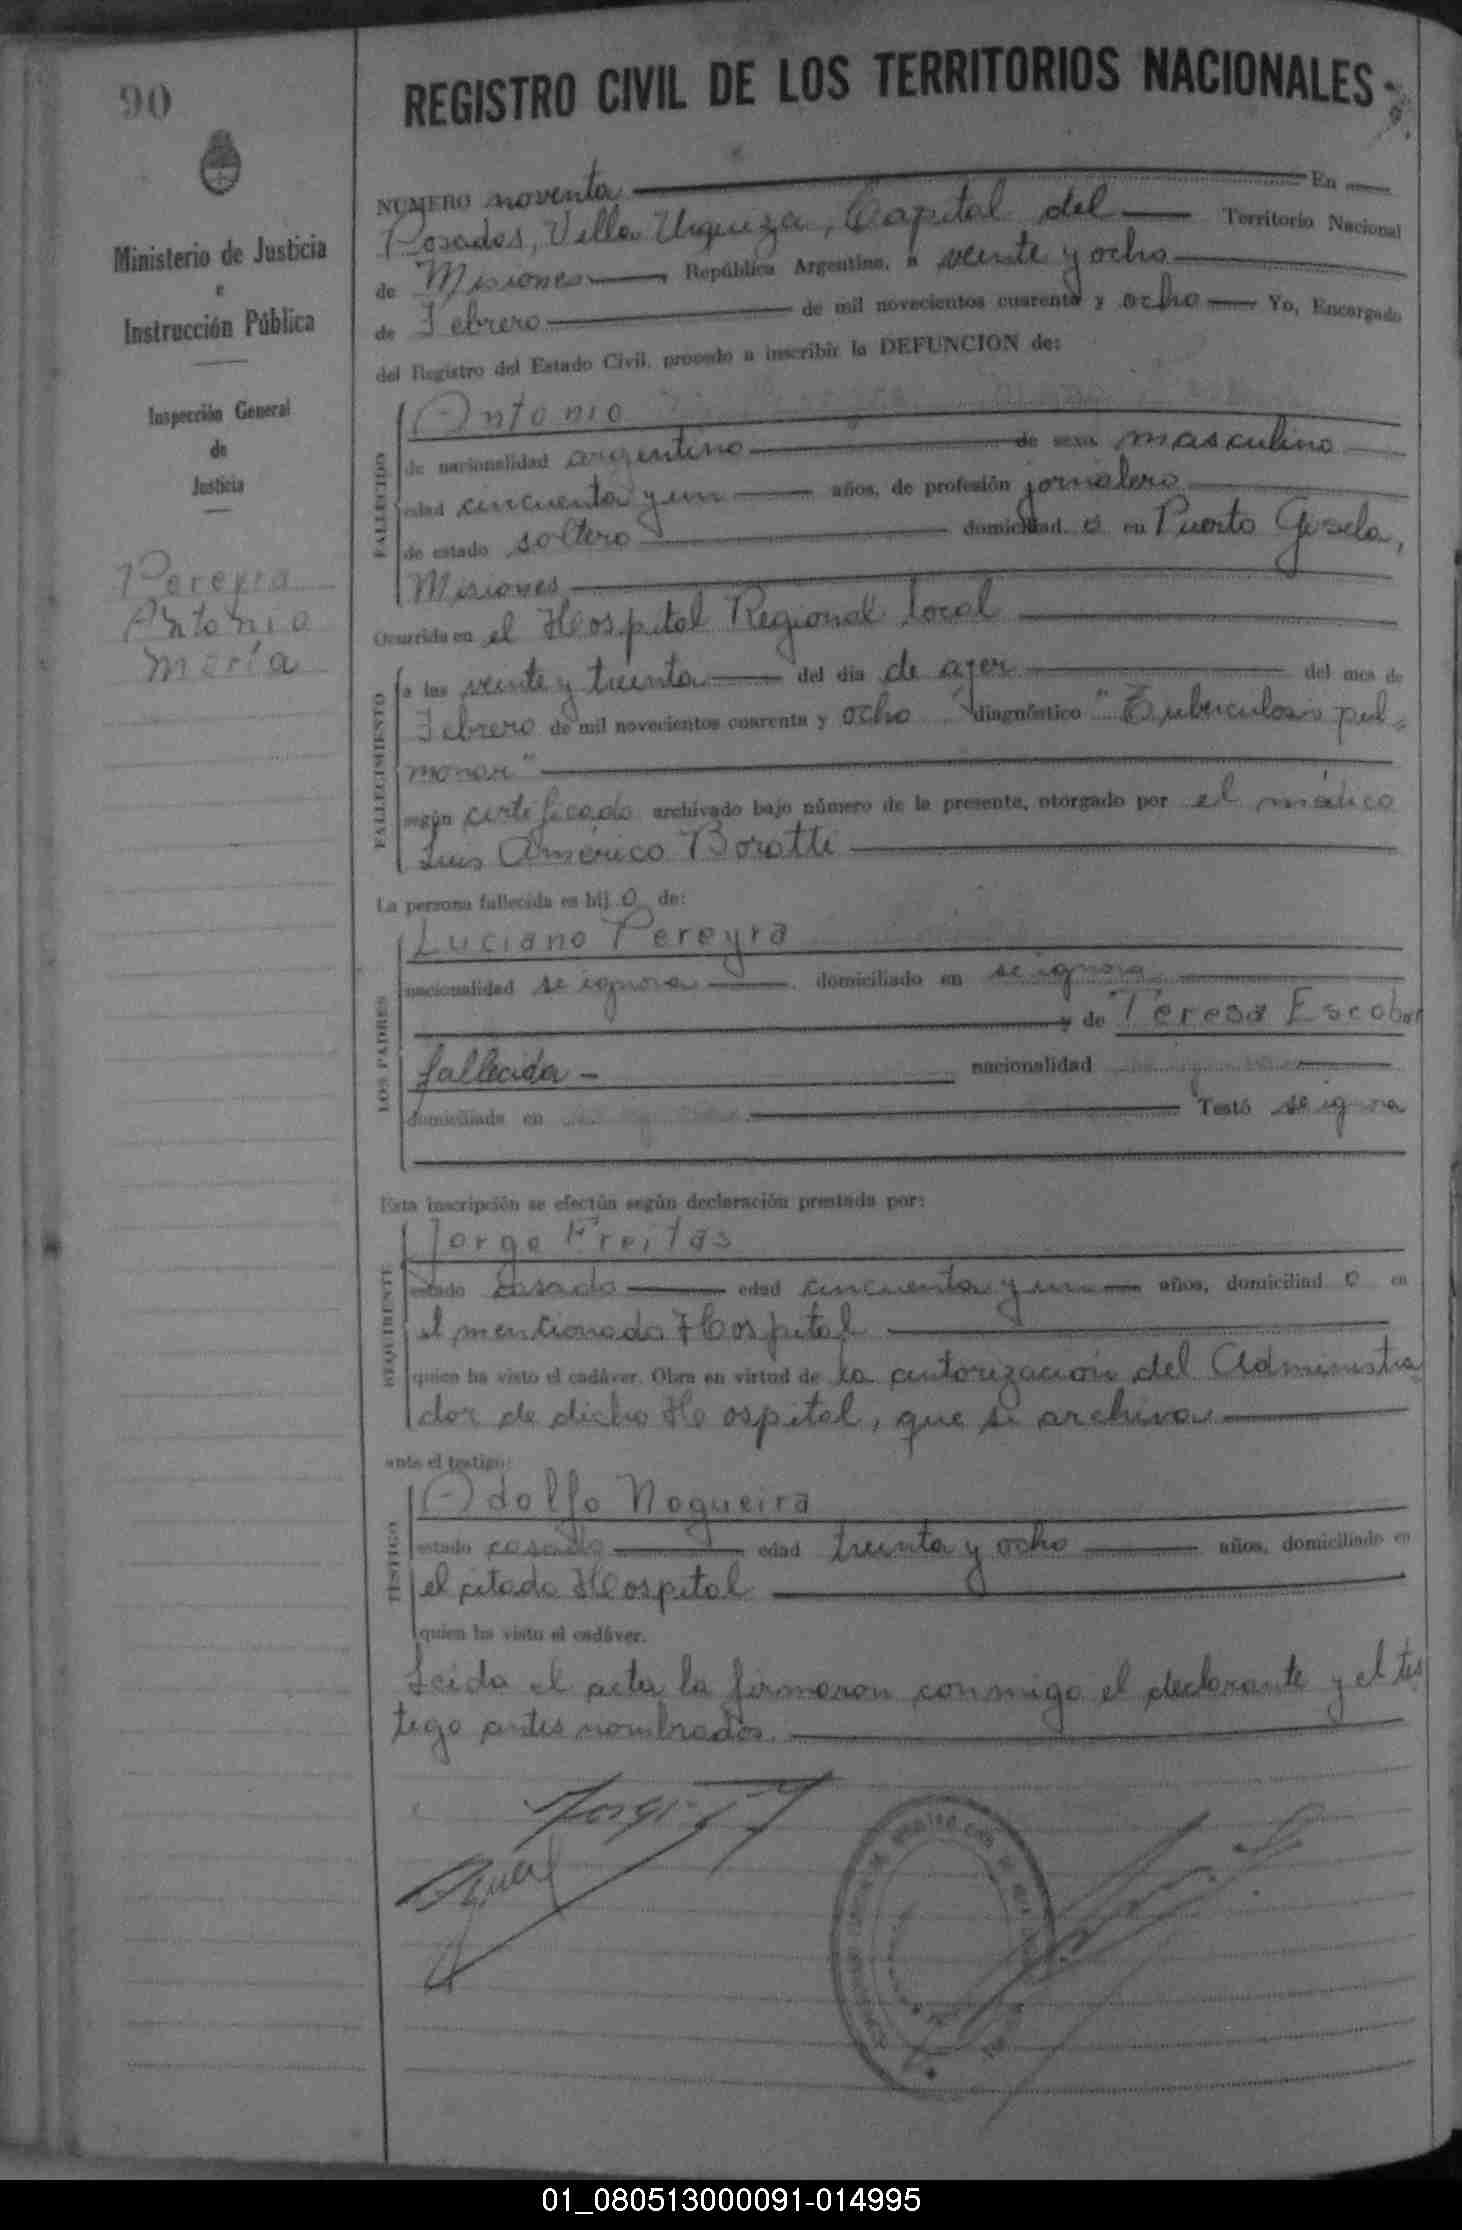 90
Ministerio de Justicia
e
Instrucción Pública
Inspección General
de
Justicia
Pereyra
Antonio
María
REGISTRO CIVIL DE LOS TERRITORIOS NACIONALES
NUMERO noventa En
Posadas, Villa Urquiza, Capital del Territorio Nacional
de Misiones, República Argentina, a veinte y ocho
de Febrero de mil novecientos cuarenta y ocho Yo, Encargado
del Registro del Estado Civil, procedo a inscribir la DEFUNCION de:
FALLECIDO
Antonio
de nacionalidad argentino de sexo masculino
edad cincuenta y un años, de profesión jornalero
de estado soltero domiciliad o en Puerto Gisela,
Misiones
Ocurrida en el Hospital Regional local
FALLECIMIENTO
a las veinte y treinta del día de ayer del mes de
Febrero de mil novecientos cuarenta y ocho diagnóstico "Tuberculosis pul-
monar"
según certificado archivado bajo número de la presente, otorgado por el médico
Luis Américo Boratti
La persona fallecida es hij o de:
LOS PADRES
Luciano Pereyra
nacionalidad se ignora domiciliado en se ignora
y de Teresa Escobar
fallecida - nacionalidad
domiciliada en Testó se ignora
Esta inscripción se efectúa según declaración prestada por:
REQUIRENTE
Jorge Freitas
estado casado edad cincuenta y un años, domiciliad o en
el mencionado Hospital
quien ha visto el cadáver. Obra en virtud de la autorización del Administra
dor de dicho Hospital, que se archiva
ante el testigo:
TESTIGO
Adolfo Nogueira
estado casado edad treinta y ocho años, domiciliado en
el citado Hospital
quien ha visto el cadáver.
Leida el acta la firmaron conmigo el declarante y el tes
tigo antes nombrados.
01_080513000091-014995